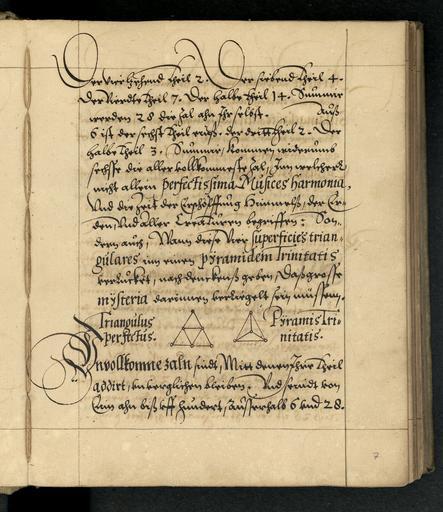 Der vierzehend theil 2. Der siebend theil 4.
Der vierdte theil 7. Der halbe theil 14. Summa
werden 28 die zal ahn ihr selbst. Auß
6 ist der sechst theil einß. der dritt theil 2. Der
halbe theil 3. Summa, kommen widerumb
sechse die aller vollkommeste zal, Inn welcher
nicht allein perfectissima Musices harmonia,
Und die Zeit der Erschöpffung Himmelß, der Er-
den, Und aller Creaturen begriffen: Son-
dern auch, Wann diese Vier superficies trian-
gulares inn einen pyramidem Trinitatis
verrücket, nach denckenß geben, Daß grosse
mysteria darinnen versiegelt sein müssen.
Triangulus Pyramis Tri-
perfectus. nitatis.
Unvollkomne zaln sindt, Mitt denen Ihre Theil
addirt, unverglichen bleiben. Und seindt von
Einß ahn biß uff hundert, Ausserhalb 6 und 28.
7